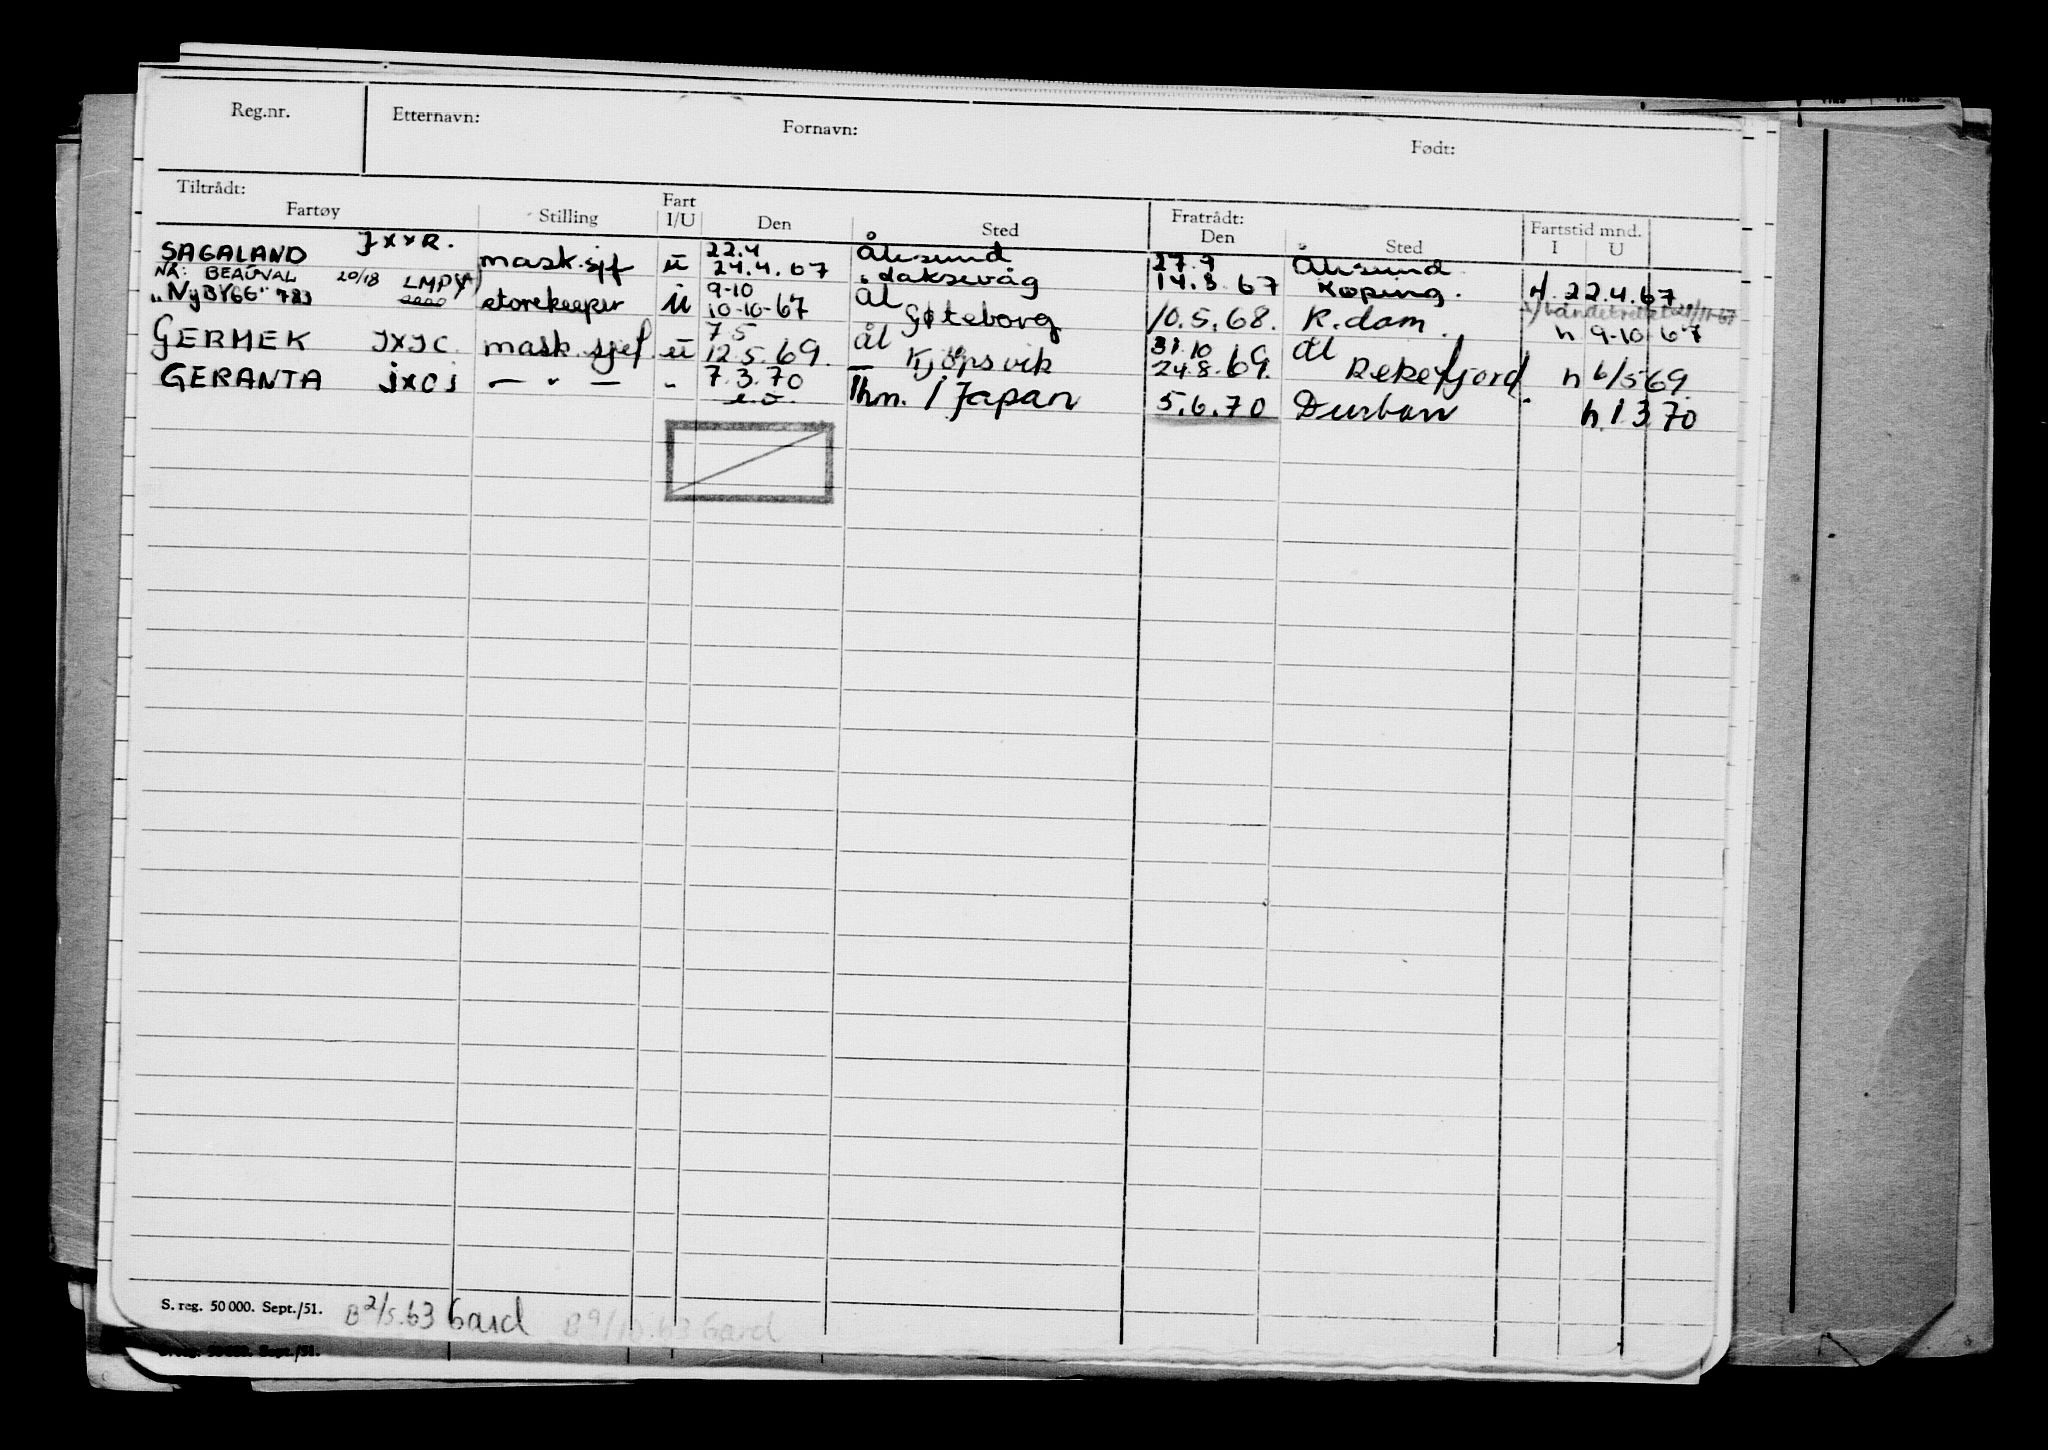 Reg.nr. Etternavn: Fornavn: Født:
Tiltrådt: Fratrådt:
Fartøy Stilling Fart I/U Den Sted Den Sted Fartstid mnd. I U
SAGALAND JXXR. mask.sjf u 22.4 Ålesund 27.9 Ålesund
24.4.67 Laksevåg 14.8 67 Köping. H. 22.4.67
NÅ: BEAUVAL 20/18 LMPY
"NyBYGG" 783 storekeeper u 9-10 Ål
10-10-67 Gøteborg 10.5.68. R.dam. n 9-10 67
GERMEK JXJC mask.sjef. u 7 5 Ål 31.10 Ål
12.5.69. Kjøpsvik 24.8.69. Rekefjord n 6/5 69.
GERANTA JXCJ — " — " 7.3.70 Thm. / Japan 5.6.70 Durban n. 1 3 70
S. reg. 50 000. Sept./51. B 2/5.63 Gard B 9/10.63 Gard
S. reg. 50 000. Sept./51.